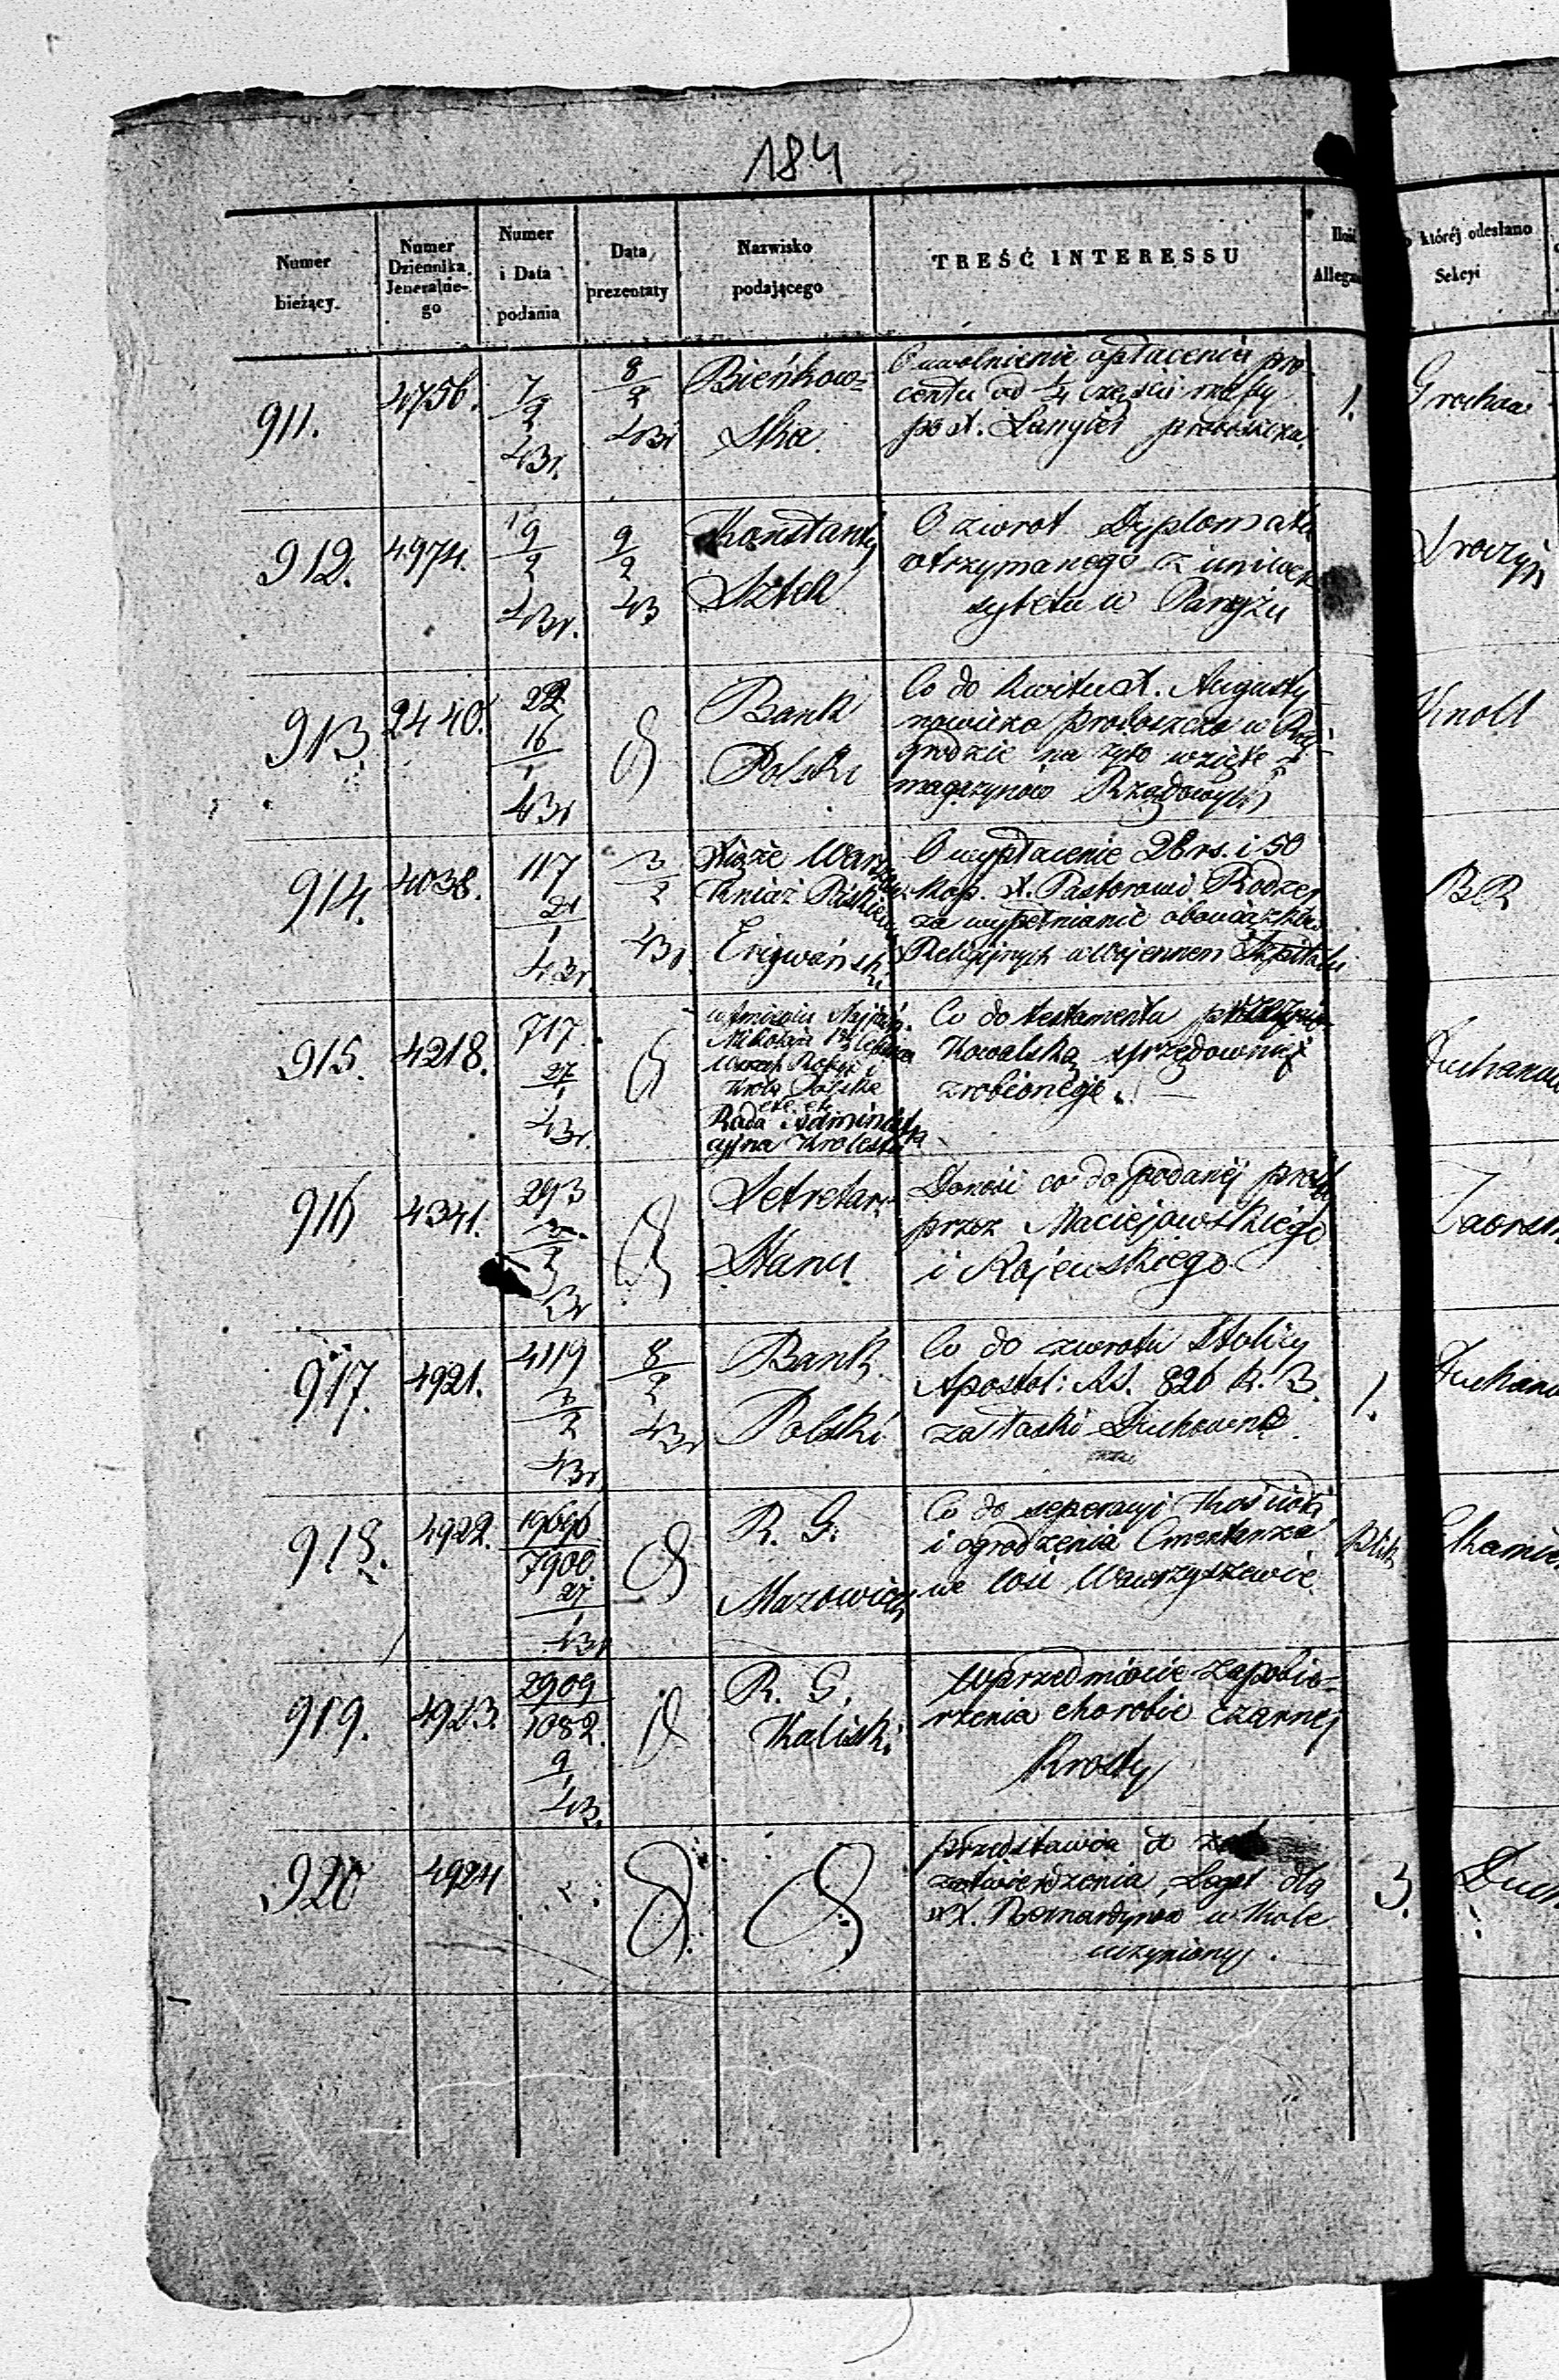 184
Numer bieżący.
Numer Dziennika Jeneralnego
Numer i Data podania
Data prezentaty
Nazwisko podającego
TREŚĆ INTERESSU
Ilość Allega
któréj odesłano Sekcyi
911. 4756. 7/2 43r. 8/2 43r Bieńkow=
ska.
O uwolnienie opłacenia pro-
centu od 1/4 części massy
po X. proboszcza.
1.
912. 4974. 9/2 43r. 9/2 43 Konstanty
O zwrot Dyplomatu
otrzymanego z uniwer
sytetu w Paryżu
913. 2440. 22 16/1 43r Bank
Polski
Co do kwitu X. Augusty
nowicza proboszcza w Raj-
grodzie na żyto wzięte z
magazynów Rządowych
Knoll
914. 4038. 117 21/1 43r. 3/2 43r. Xiąże Warszaw
Kniaź Paskiewi
Erywański
O wypłacenie 28 rs. i 50
kop. X. Pastorowi
za wypełnianie obowiązków
Religijnych w Wojennem Szpitalu
915. 4218. 717. 27/1 43r. w Imieniu Najjaś.
Mikołaja I
Króla Polska
etc. etc.
Rada Administra
cyjna Królestwa
Co do testamentu przez
Kowalską
zrobionego.
916 4341. 293 43r Sekretarz
Stanu.
Donosi co do podanéj prośby
przez Maciejowskiego
i Rojewskiego
917. 4921. 4119 3/2 43r. 8/2 43r Bank
Polski
Co do zwrotu Stolicy
Apostol: Rs. 826 k. 3.
za łaski Duchowne.
1.
918. 4922. 19696/7900. 27/1 43r R. G.
Mazowiecki
Co do reperacyi Kościoła
i ogrodzenia Cmentarza
we wsi Wawrzyszewie
919. 4923. 2909/1082. 9/1 43. R. G.
Kaliski
W przedmiocie zapobie=
rzenia chorobie czarnej
Krosty
920 4924
przedstawia do
zatwierdzenia, Legat dla
XX. Bernardynów w Kole
uczyniony.
3.